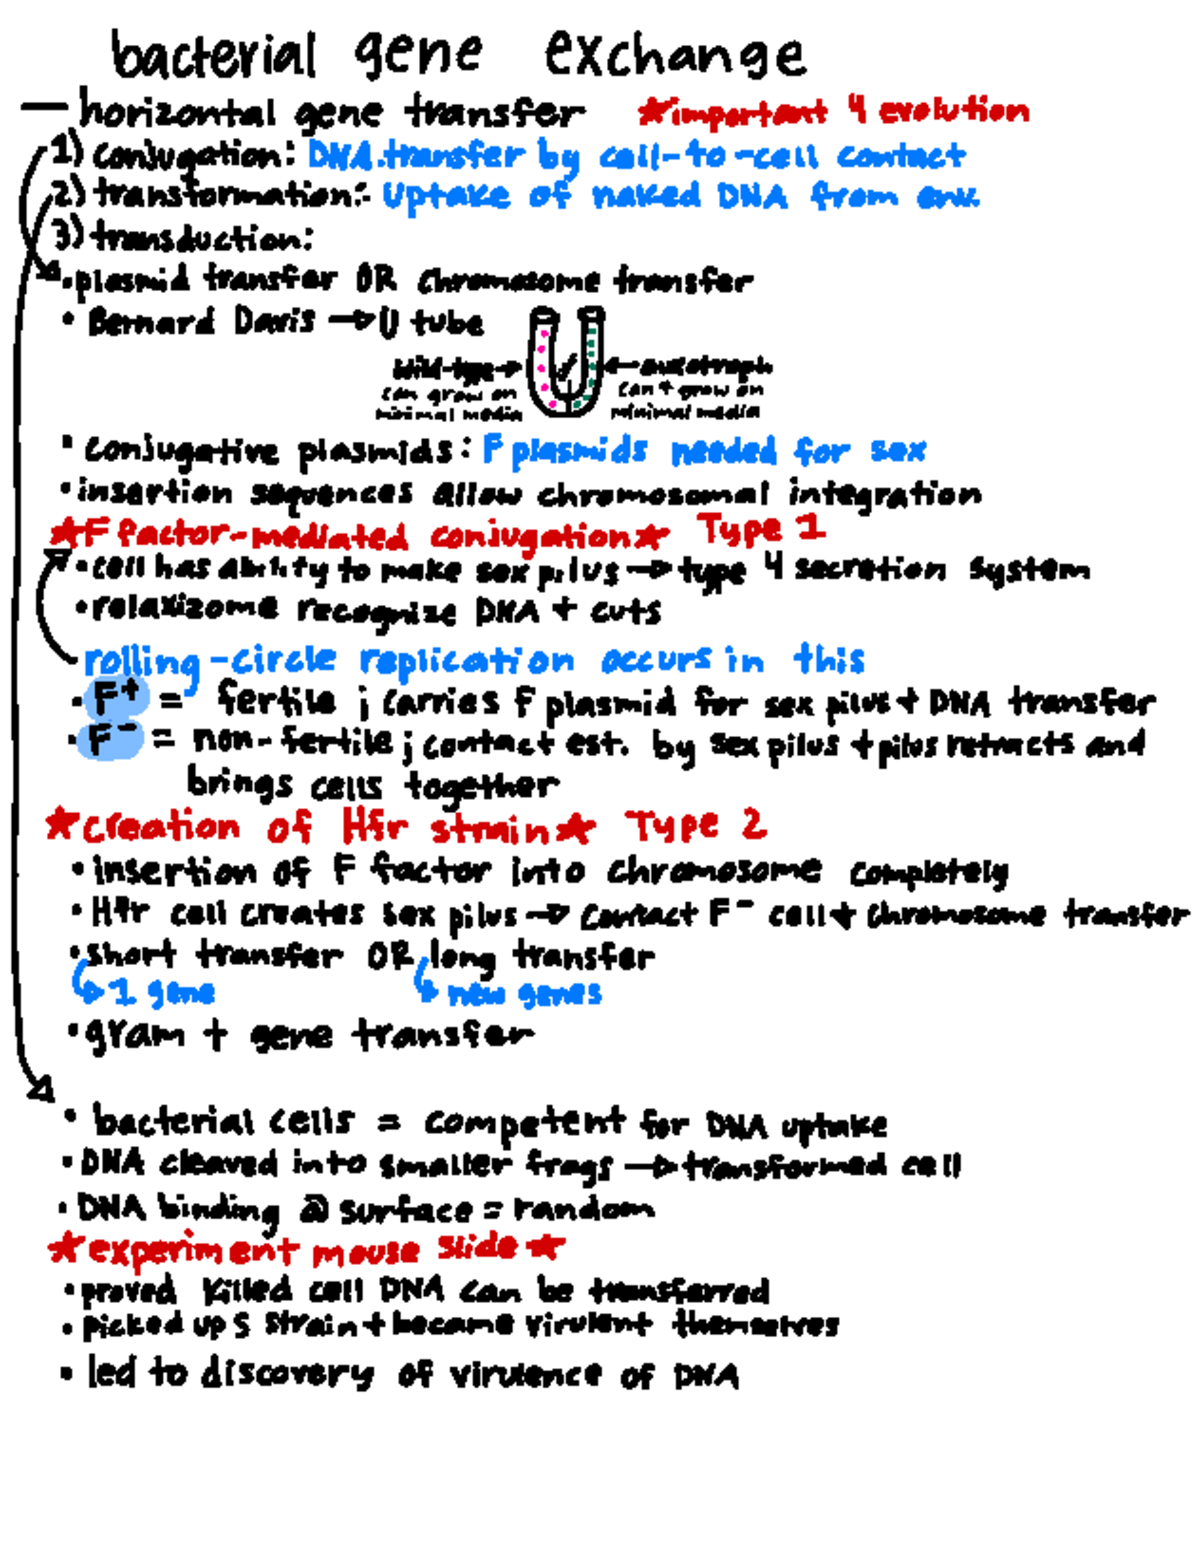 bacterial gene exchange
— horizontal gene transfer ★important 4 evolution
1) conjugation: DNA transfer by cell-to-cell contact
2) transformation: uptake of naked DNA from env.
3) transduction:
• plasmid transfer OR chromosome transfer
• Bernard Davis → U tube
wild-type → ← auxotroph
can grow on can't grow on
minimal media minimal media
• conjugative plasmids: F plasmids needed for sex
• insertion sequences allow chromosomal integration
★F factor-mediated conjugation★ Type 1
• cell has ability to make sex pilus → type 4 secretion system
• relaxizome recognize DNA + cuts
rolling-circle replication occurs in this
• F+ = fertile ; carries F plasmid for sex pilus + DNA transfer
• F- = non-fertile ; contact est. by sex pilus + pilus retracts and
brings cells together
★creation of Hfr strain★ Type 2
• insertion of F factor into chromosome completely
• Hfr cell creates sex pilus → contact F- cell + chromosome transfer
• short transfer OR long transfer
↳ 1 gene ↳ new genes
• gram + gene transfer
• bacterial cells = competent for DNA uptake
• DNA cleaved into smaller frags → transformed cell
• DNA binding @ surface = random
★experiment mouse slide★
• proved killed cell DNA can be transferred
• picked up S strain + became virulent themselves
• led to discovery of virulence of DNA